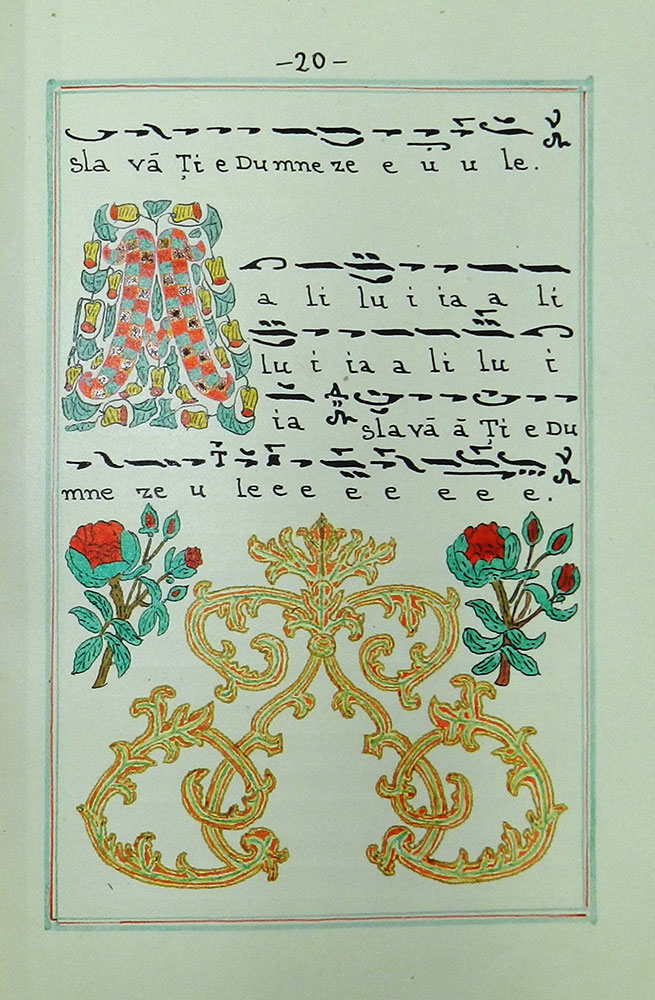 -20-
sla vă Ţi e Dumne ze e u u le.
A
a li lu i ia a li
lu i ia a li lu i
ia slavă ă Ţi e Du
mne ze u le e e e e e e e.